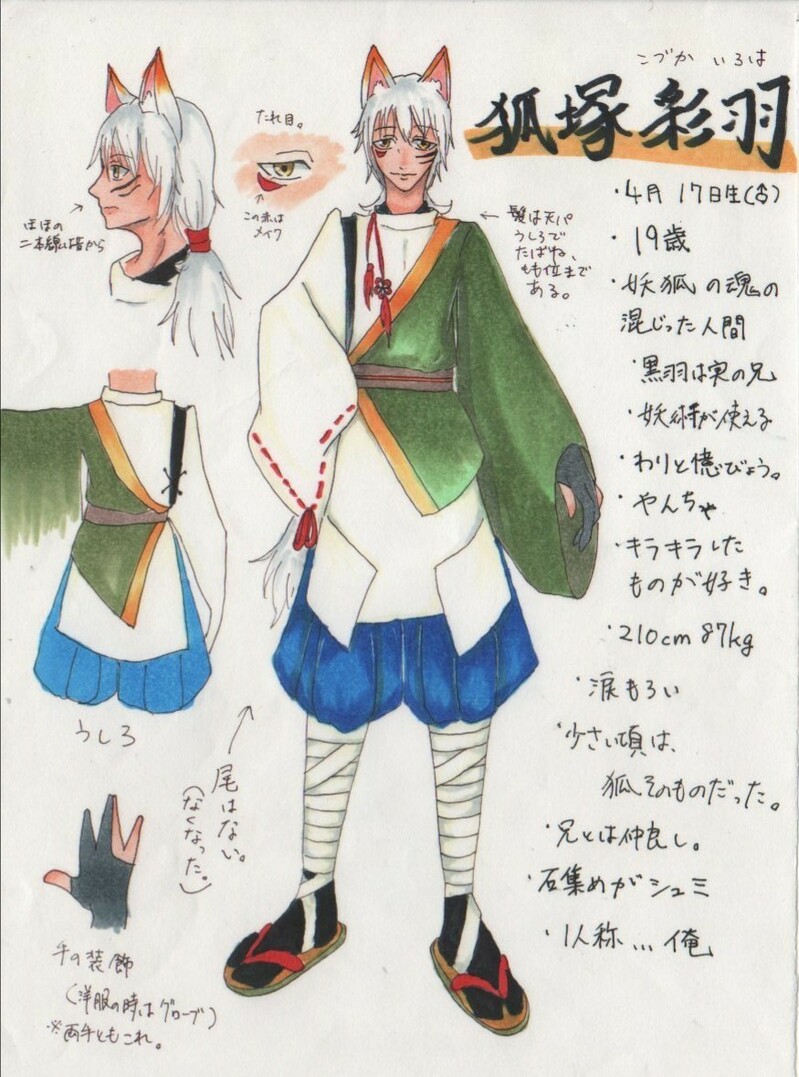 こづか いろは
狐塚 彩羽
・4月17日生(合)
・19歳
・妖狐の魂の
混じった人間
・黒羽は実の兄
・妖術が使える
・わりと憶びょう。
・やんちゃ
・キラキラした
ものが好き。
・210cm 87kg
・涙もろい
・少さい頃は、
狐そのものだった。
・兄とは仲良し。
・石集めがシュミ
・1人称…俺
たれ目。
この赤は
メイク
ほほの
二本線は昔から
←髪は天パ
うしろで
たばね、
もも位まで
ある。
うしろ
尾はない。
(なくなった。)
手の装飾
(洋服の時はグローブ)
※両手ともこれ。